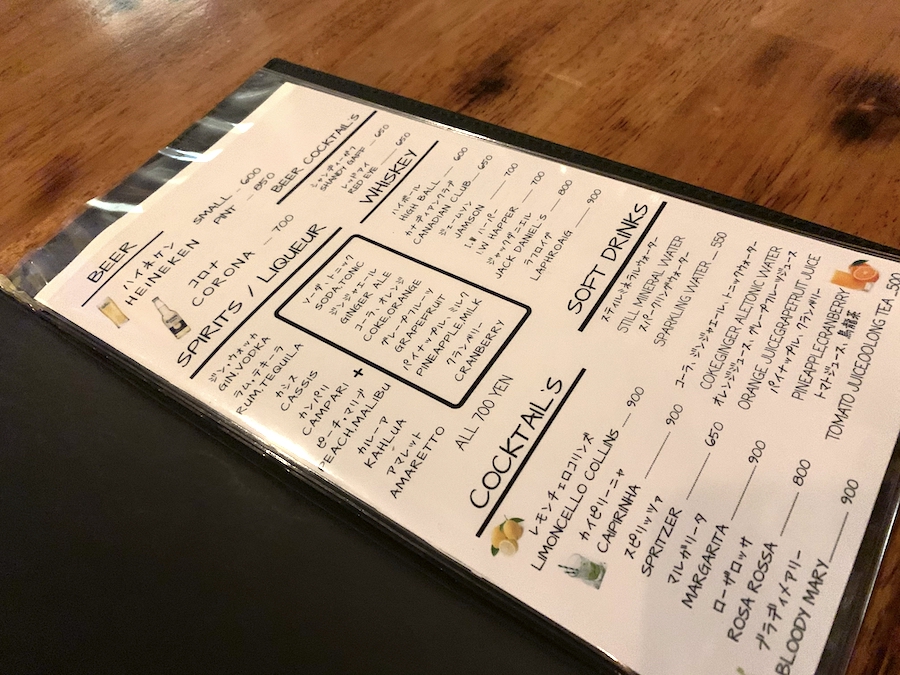 BEER
ハイネケン
HEINEKEN
SMALL — 600
PINT — 850
コロナ
CORONA — 700
BEER COCKTAIL'S
シャンディーガフ
SHANDY GAFF — 650
レッドアイ
RED EYE — 650
SPIRITS / LIQUEUR
ジン.ウォッカ
GIN.VODKA
ラム.テキーラ
RUM.TEQUILA
カシス
CASSIS
カンパリ
CAMPARI
ピーチ.マリブ
PEACH.MALIBU
カルーア
KAHLUA
アマレット
AMARETTO
+
ソーダ.トニック
SODA.TONIC
ジンジャエール
GINGER ALE
コーラ.オレンジ
COKE.ORANGE
グレープフルーツ
GRAPEFRUIT
パイナップル.ミルク
PINEAPPLE.MILK
クランベリー
CRANBERRY
ALL 700 YEN
WHISKEY
ハイボール
HIGH BALL — 600
カナディアンクラブ
CANADIAN CLUB — 650
ジェームソン
JAMSON — 700
I.W ハーパー
I.W HAPPER — 700
ジャックダニエル
JACK DANIEL'S — 800
ラフロイグ
LAPHROAIG — 900
SOFT DRINKS
スティルミネラルウォーター
STILL MINERAL WATER
スパークリングウォーター
SPARKLING WATER — 550
コーラ.ジンジャエール.トニックウォーター
COKE.GINGER ALE.TONIC WATER
オレンジジュース.グレープフルーツジュース
ORANGE JUICE.GRAPEFRUIT JUICE
パイナップル.クランベリー
PINEAPPLE.CRANBERRY
トマトジュース.烏龍茶
TOMATO JUICE.OOLONG TEA 500
COCKTAIL'S
レモンチェロコリンズ
LIMONCELLO COLLINS — 900
カイピリーニャ
CAIPIRINHA — 900
スピリッツァ
SPRITZER — 650
マルガリータ
MARGARITA — 900
ローザロッサ
ROSA ROSSA — 800
ブラディメアリー
BLOODY MARY — 900